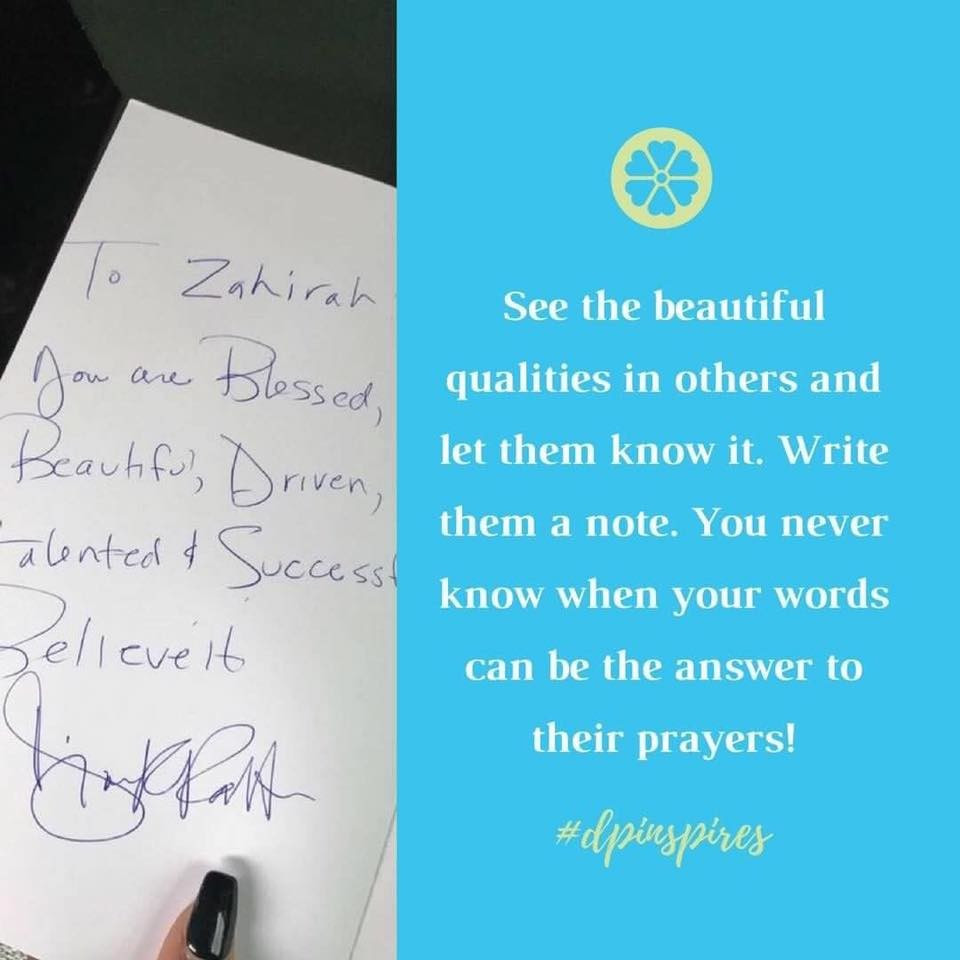 To Zahirah
You are Blessed,
Beautiful, Driven,
Talented & Success
Believe it
See the beautiful
qualities in others and
let them know it. Write
them a note. You never
know when your words
can be the answer to
their prayers!
#dpinspires